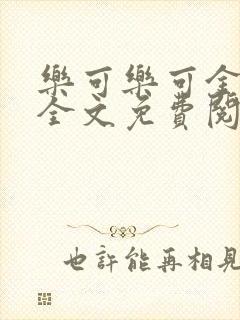 樂可樂可全
全文免費閱
也許能再相見